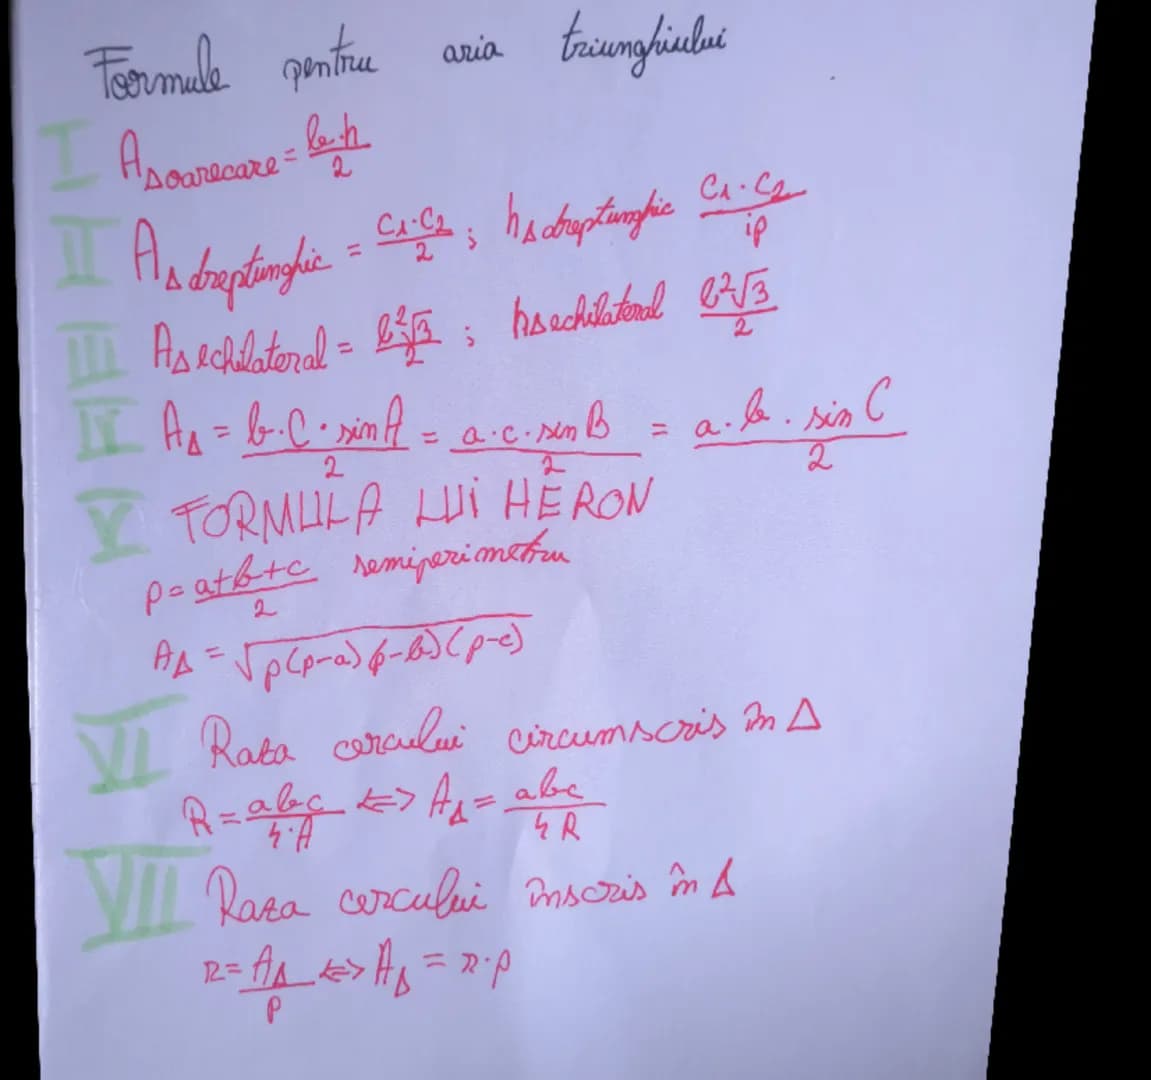 Formule pentru aria triunghiului
I A Δoarecare = b·h/2
II A Δ dreptunghic = C1·C2/2 ; h Δ dreptunghic C1·C2/ip
III A Δ echilateral = l²√3/2 ; h Δ echilateral l²√3/2
IV AΔ = b·C·sin A/2 = a·c·sin B/2 = a·b·sin C/2
V FORMULA LUI HERON
p = a+b+c/2 semiperimetru
AΔ = √p(p-a)(p-b)(p-c)
VI Raza cercului circumscris în Δ
R = abc/4·A <=> AΔ = abc/4R
VII Raza cercului înscris în Δ
r = AΔ/p <=> AΔ = r·p